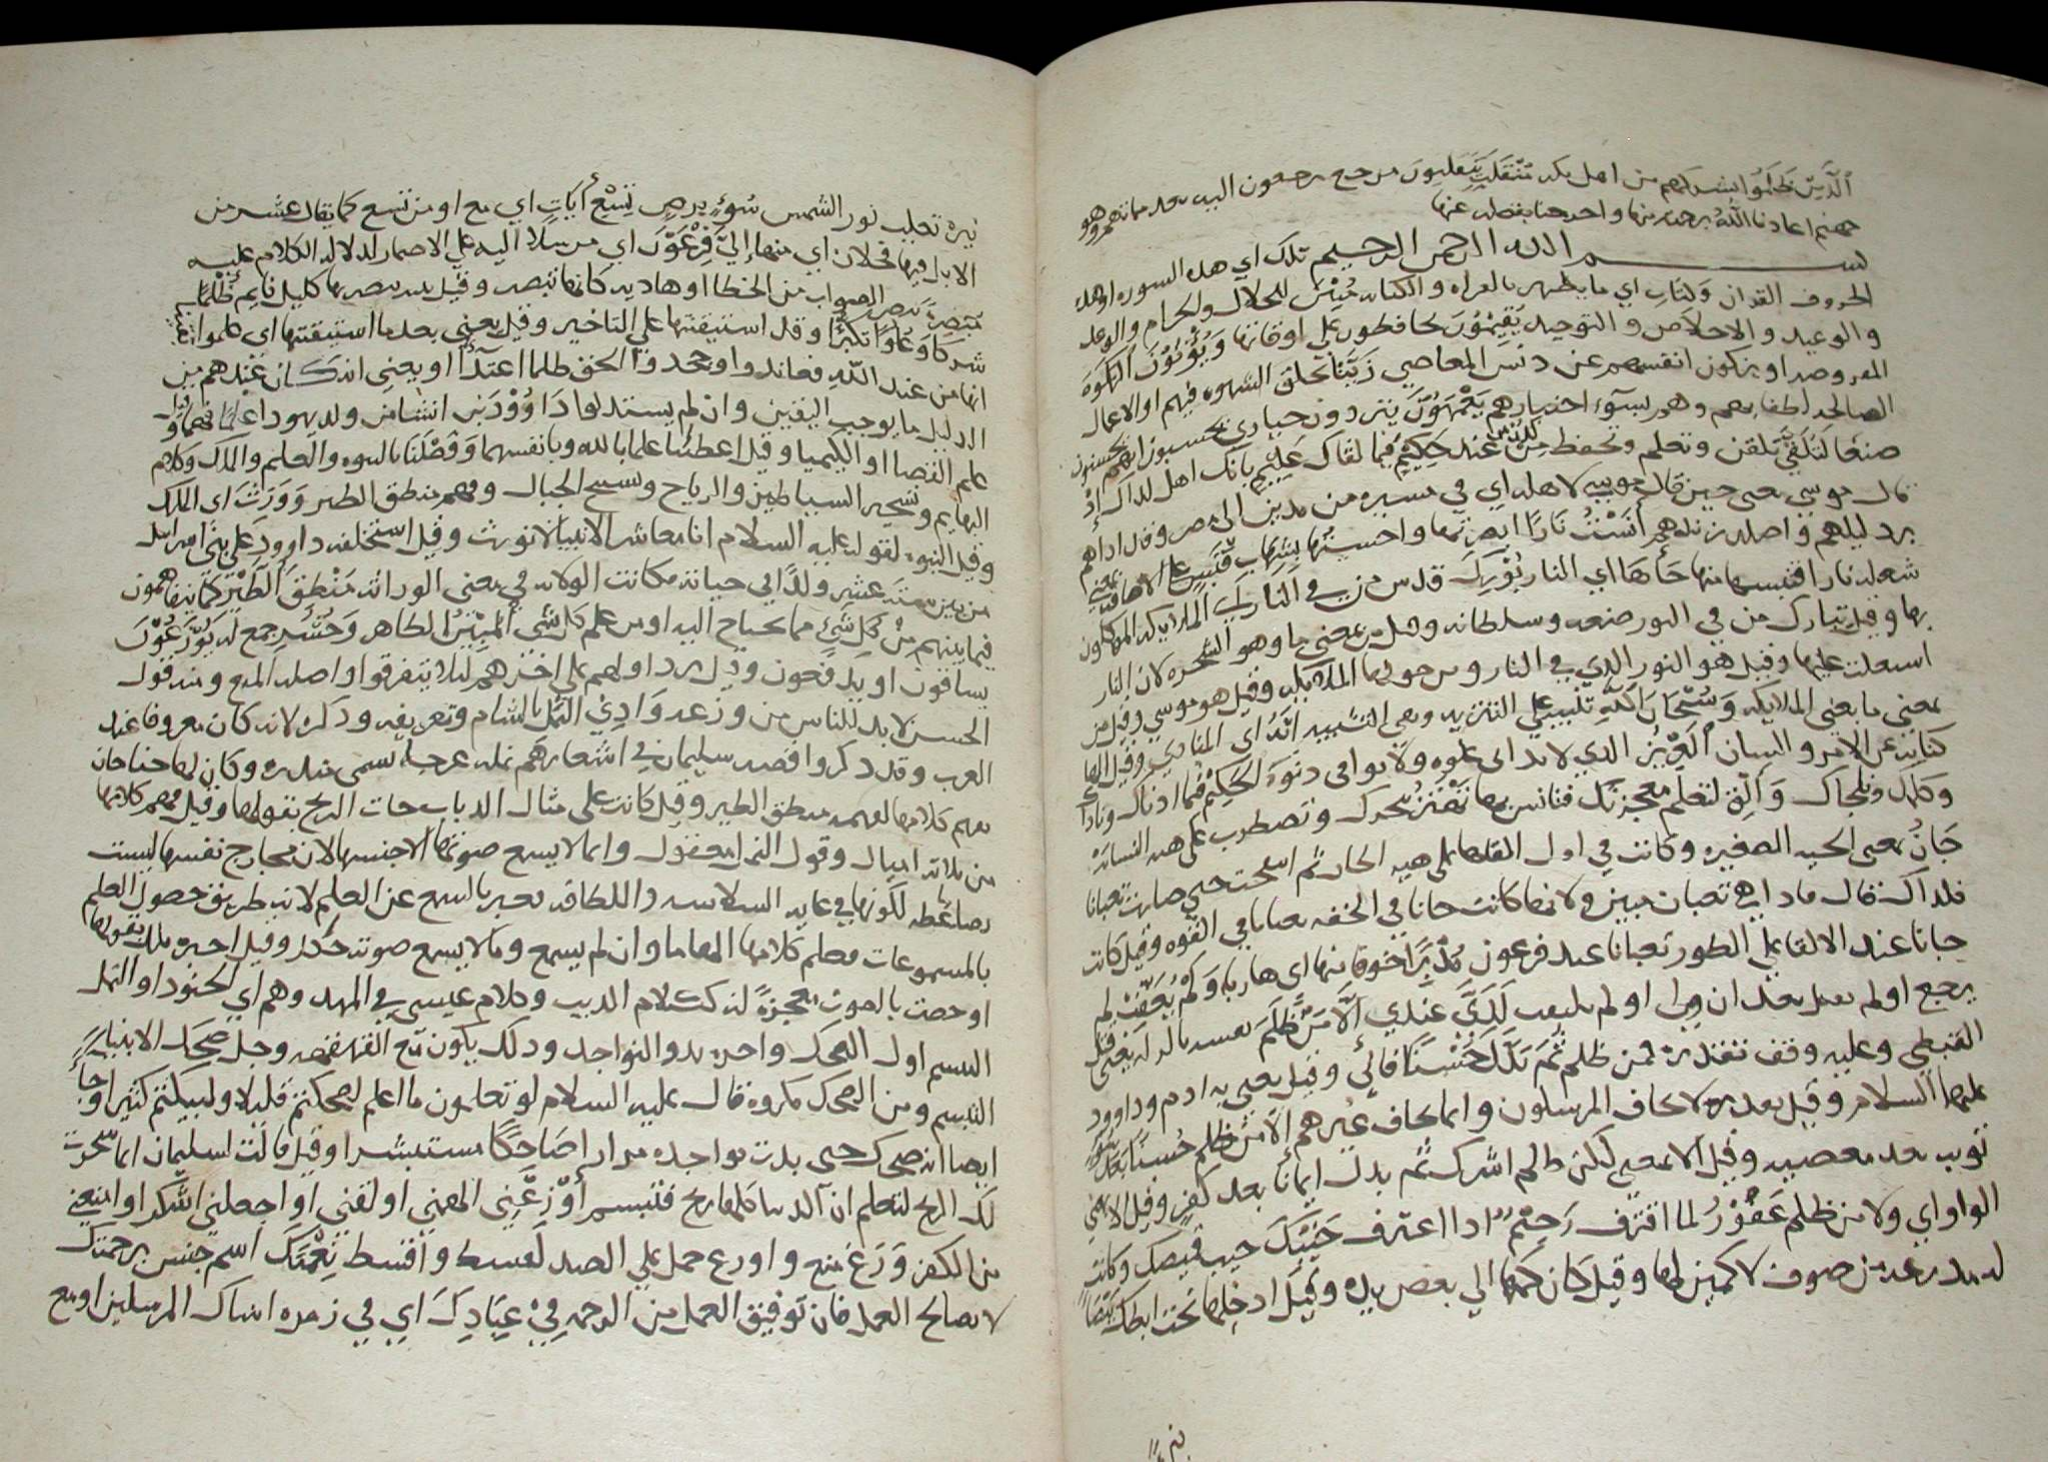 الَّذِينَ ظَلَمُوا بشركهم من اهل مكه مُنْقَلَبٍ يَنْقَلِبُونَ مرجع يرجعون اليه بعد مماتهم وهو
جهنم اعاذنا اللهُ برحمته منها واحرجنا بفضله عنها
بسم الله الرحمن الرحيم تلك اي هذه السوره او هذه
الحروف القران وَكِتَابٍ اي ما يظهر بالقراه والكتابه مُبِيْنٍ للحلال والحرام والوعد
والوعيد والاخلاص والتوحيد يُقِيْمُوْنَ يحافظون علي اوقاتها وَيُؤْتُوْنَ الزكوةَ
المفروضه او يزكون انفسهم عن دنس المعاصي زَيَّنَّا بخلق الشهوه فيهم او الاعمال
الصالحه لطفا بهم وهم بسوٓء اختيارهم يَعْمَهُوْنَ يترددون حيارى يحسبون انهم يحسنون
صنعًا لَتُلَقَّى تلقن وتعلم وتحفظ مِنْ لَّدُنْ من عند حَكِيْمٍ فيما لقاك عَلِيْمٍ بانك اهل لذاك إِذْ
قال موسي يعني حين قال موسي لاهله اي في مسيره من مدين الى مصر وقد اداهم
برد ليلهم واصلد زندهم اٰنَسْتُ نَارًا ابصرتها واحسستها بِشِهَابٍ قَبَسٍ على الاضافة بمعني
شعله نار اقتبسها منها جَاۤءَهَا اي النار بُوْرِكَ قدس من في النار اي الملايكه الموكلون
بها وقيل تبارك من في النور صنعه وسلطانه وقيل من بمعني ما وهو الشجره لان النار
اشعلت عليها وقيل هو النور الذي في النار ومن حولها الملايكه وقيل هو موسي وقيل من
بمعني ما يعني الملايكه وَسُبْحَانَ اللّٰهِ تنبيه علي التنزيه ونفي التشبيه انَّهُ اي المنادي وقيل الهاء
كنايه عن الامر والشان الْعَزِيْزُ الذي لا يداني علوه ولا يوافي دنوه الْحَكِيْمُ فيما ادناك وناداك
وكلمك ونجاك وَأَلْقِ لتعلم معجزتك فتانس بها تَهْتَزُّ تتحرك وتضطرب علي هيه النسانه
جَانٌّ يعني الحيه الصغيره وكانت في اول القلبها علي هيه الجان ثم انتفخت حتي صارت ثعبانا
فلذاك قال فاذا هي ثعبان مبين ولانها كانت جانا في الخفه ثعبانا في القوه وقيل كانت
جانا عند الالقا علي الطور ثعبانا عند فرعون مُدْبِرًا خوفا منها اي هاربا وَلَمْ يُعَقِّبْ لم
يرجع او لم يقبل بعد ان ولى او لم يلتفت لَدَيَّ عندي اِلَّا مَنْ ظَلَمَ نفسه بالزلة يعني قتل
القبطي وعليه وقف تقديرة لمن ظلم ثُمَّ بَدَّلَ حُسْنًا فاني وقيل يعني به ادم وداوود
عليهما السلام وقيل تقديره لا يخاف المرسلون وانما يخاف غيرهم اِلَّا مَنْ ظلم حُسْنًا بَعْدَ سُوْءٍ
توب بعد معصيه وقيل الا بمعني لكن ظلم اشرك ثم بدل ايمانا بعد كفر وقيل الا بمعني
الواو اي ولا من ظلم غَفُوْرٌ لما اقترف رَحِيْمٌ اذا اعترف جَيْبِكَ جيب قميصك وكانت
له مدرعه من صوف لا كمين لها وقيل كان كمها الي بعض يده وقيل ادخلها تحت ابطك بَيْضَاءَ
نيره
نيره تغلب نور الشمس سُوْءٍ برص تِسْعِ آيَاتٍ اي مع او من تسع كما يقال عشر من
الابل فيها فحلان اي منها إِلَىٰ فِرْعَوْنَ اي مرسلا اليه علي الاضمار لدلاله الكلام عليه
مُبْصِرَةً تبصر الصواب من الخطا او هاديه كانها تبصر وقيل بينه يبصر بها كليل نايم ظُلْمًا
شركا وَعُلُوًّا تكبرًا وقد استيقنتها علي التاخير وقيل يعني بعد ما استيقنتها اي علموا
انها من عند اللّٰهِ فعاندوا وجحدوا الحق ظلما اعتدآءًا او يعني انه كان عندهم من
الدليل ما يوجب اليقين وان لم يستدلوا دَاوُوْدَ بن انشا من ولد يهودا عِلْمًا فهما وقيل
علم القضا او الكيميا وقيل اعطينا علما بالله وبانفسهما وَفَضَّلَنَا بالنبوه والعلم والملك وكلام
البهايم وتسخير الشياطين والرياح وتسبيح الجبال وفهم منطق الطير وَوَرِثَ اي الملك
وقيل النبوه لقوله عليه السلام انا معاشر الانبيا لا نورث وقيل استخلفه داوود علي بني اسرايل
من بين ستة عشر ولدًا في حياته فكانت الولايه في معنى الوراثه مَنْطِقَ الطَّيْرِ كما يتفاهمون
فيما بينهم مِنْ كُلِّ شَيْءٍ مما يحتاج اليه او من علم كل شي الْمُبِيْنُ الظاهر وَحُشِرَ جمع له يُوْزَعُوْنَ
يساقون او يلقحون وقيل يرد اولهم علي اخرهم ليلا يتفرقوا واصله المنع ومنه قول
الحسن لا بد للناس من وزعه وَادِي النَّمْلِ بالشام وتعريفه وذكره لانه كان معروفا عند
العرب وقد ذكروا قصه سليمان في اشعارهم نمله عرجا تسمى منذره وكان لها جناحان
ففهم كلامها لفهمه منطق الطير وقيل كانت علي مثال الذباب جات الريح بقولها وقيل فهم كلامها
من ثلاثه اميال وقول النمل معقول وانما لا يسمع صوتها الا جنسها لان مخارج نفسها ليست
بضاغطه لكونها في غايه السلاسه واللطافه تعبر بالسمع عن العلم لانه طريق حصول العلم
بالمسموعات فعلم كلامها الهاما وان لم يسمع ومالا يسمع صوته حُكل وقيل اخبره ملك بقولها
او خصت بالصوت معجزةً له ككلام الذيب وكلام عيسي في المهد وهم اي الجنود او النمل
التبسم اول الضحك واخره بدو النواجذ وذلك يكون مع القهقهه وجل ضحك الانبياء
التبسم ومن الضحك مكروه قال عليه السلام لو تعلمون ما اعلم لضحكتم قليلا ولبكيتم كثيرا وجاء
ايضا انه ضحك حتى بدت نواجذه مرارا ضَاحِكًا مستبشرا وقيل قَالَتْ لسليمان انما سخرت
لك الريح لتعلم ان الدنيا كلها ريح فتبسم أَوْزِعْنِي الهمني او لقني او اجعلني اشكر او امنعني
من الكفر وَزَعَ منع واوزع حمل علي الصد كقسط واقسط نِعْمَتَكَ اسم جنس برحمتك
لا بصالح العمل فان توفيق العمل من الرحمه فِيْ عِبَادِكَ اي في زمره انبياك المرسلين او مع